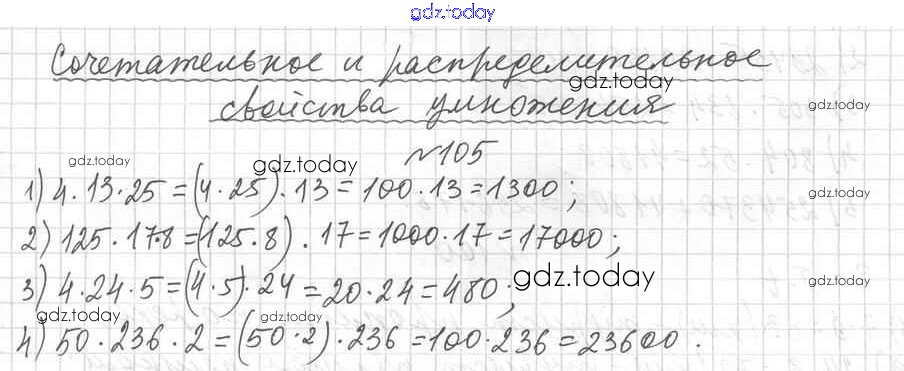 gdz.today
Сочетательное и распределительное
gdz.today
свойства умножения
gdz.today
№105
gdz.today
gdz.today
1) 4·13·25=(4·25)·13=100·13=1300;
gdz.today
2) 125·17·8=(125·8)·17=1000·17=17000;
gdz.today
3) 4·24·5=(4·5)·24=20·24=480;
gdz.today
gdz.today
4) 50·236·2=(50·2)·236=100·236=23600.